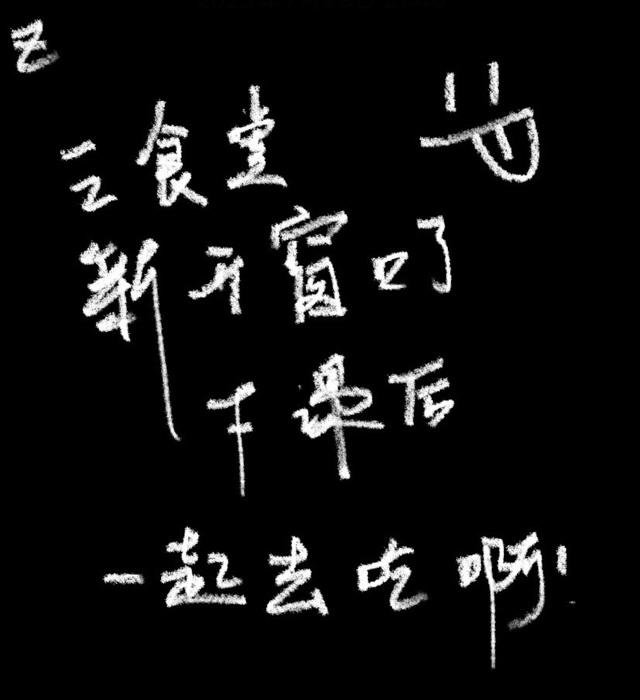 Z
三食堂
新开窗口了
下课后
一起去吃啊!